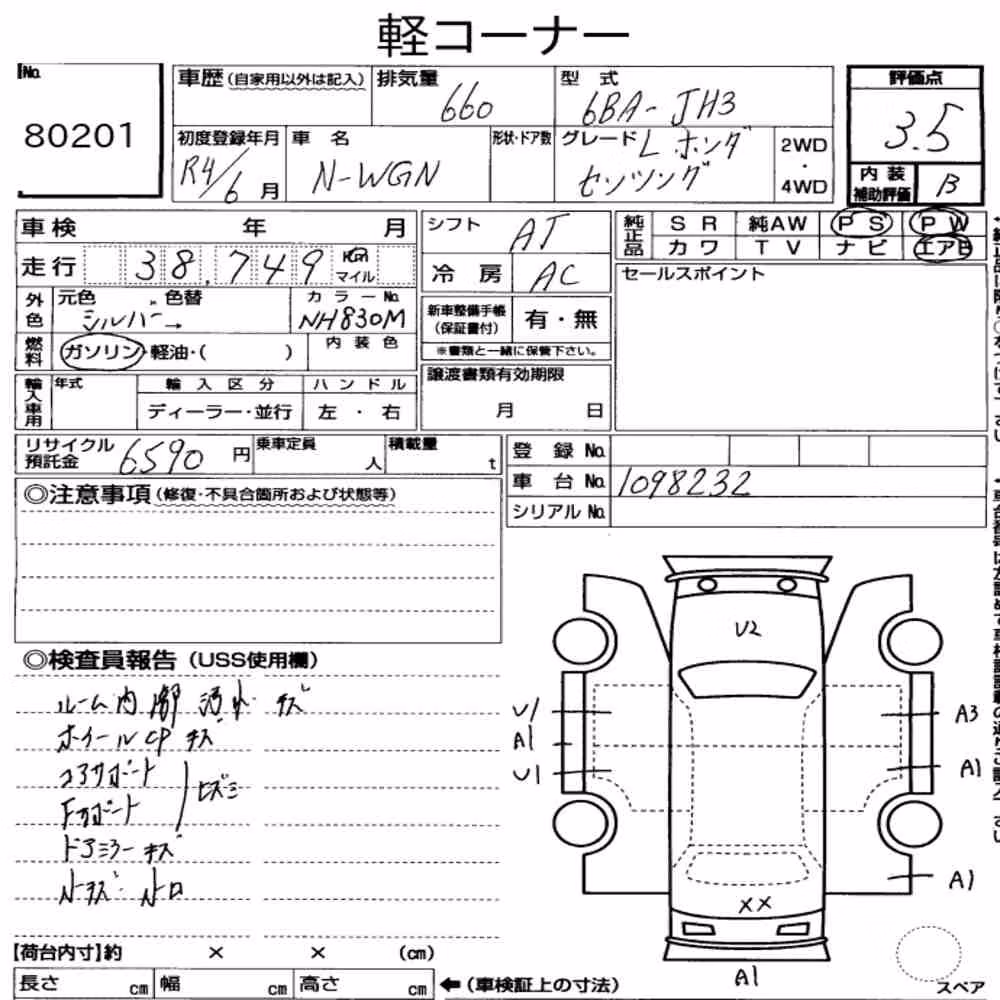 軽コーナー
No.
80201
車歴 (自家用以外は記入)
排気量
660
型 式
6BA-JH3
評価点
3.5
初度登録年月
R4/6 月
車 名
N-WGN
形状・ドア数
グレード L ホンダ
センシング
2WD
・
4WD
内 装
補助評価
B
車検 年 月
走行 38,749 km マイル
シフト AT
冷 房 AC
純正品
S R 純AW P S P W
カワ T V ナビ エアB
セールスポイント
外色
元色 色替
シルバー →
カラーNo.
NH830M
燃料
ガソリン・軽油・( )
内 装 色
新車整備手帳
(保証書付)
有・無
※書類と一緒に保管下さい。
輸入車用
年式
輸 入 区 分
ディーラー・並行
ハ ン ド ル
左 ・ 右
譲渡書類有効期限
月 日
リサイクル
預託金
6590 円
乗車定員
人
積載量
t
登 録 No.
車 台 No. 1098232
シリアル No.
◎注意事項 (修復・不具合箇所および状態等)
◎検査員報告 (USS使用欄)
ルーム内 汚れ キズ
ホイールCP キズ
コアサポート
Fサポート
ヒズミ
ドアミラー キズ
U2
U1
A1
U1
A3
A1
A1
XX
A1
スペア
【荷台内寸】約 × × (cm)
長さ cm 幅 cm 高さ cm
←(車検証上の寸法)